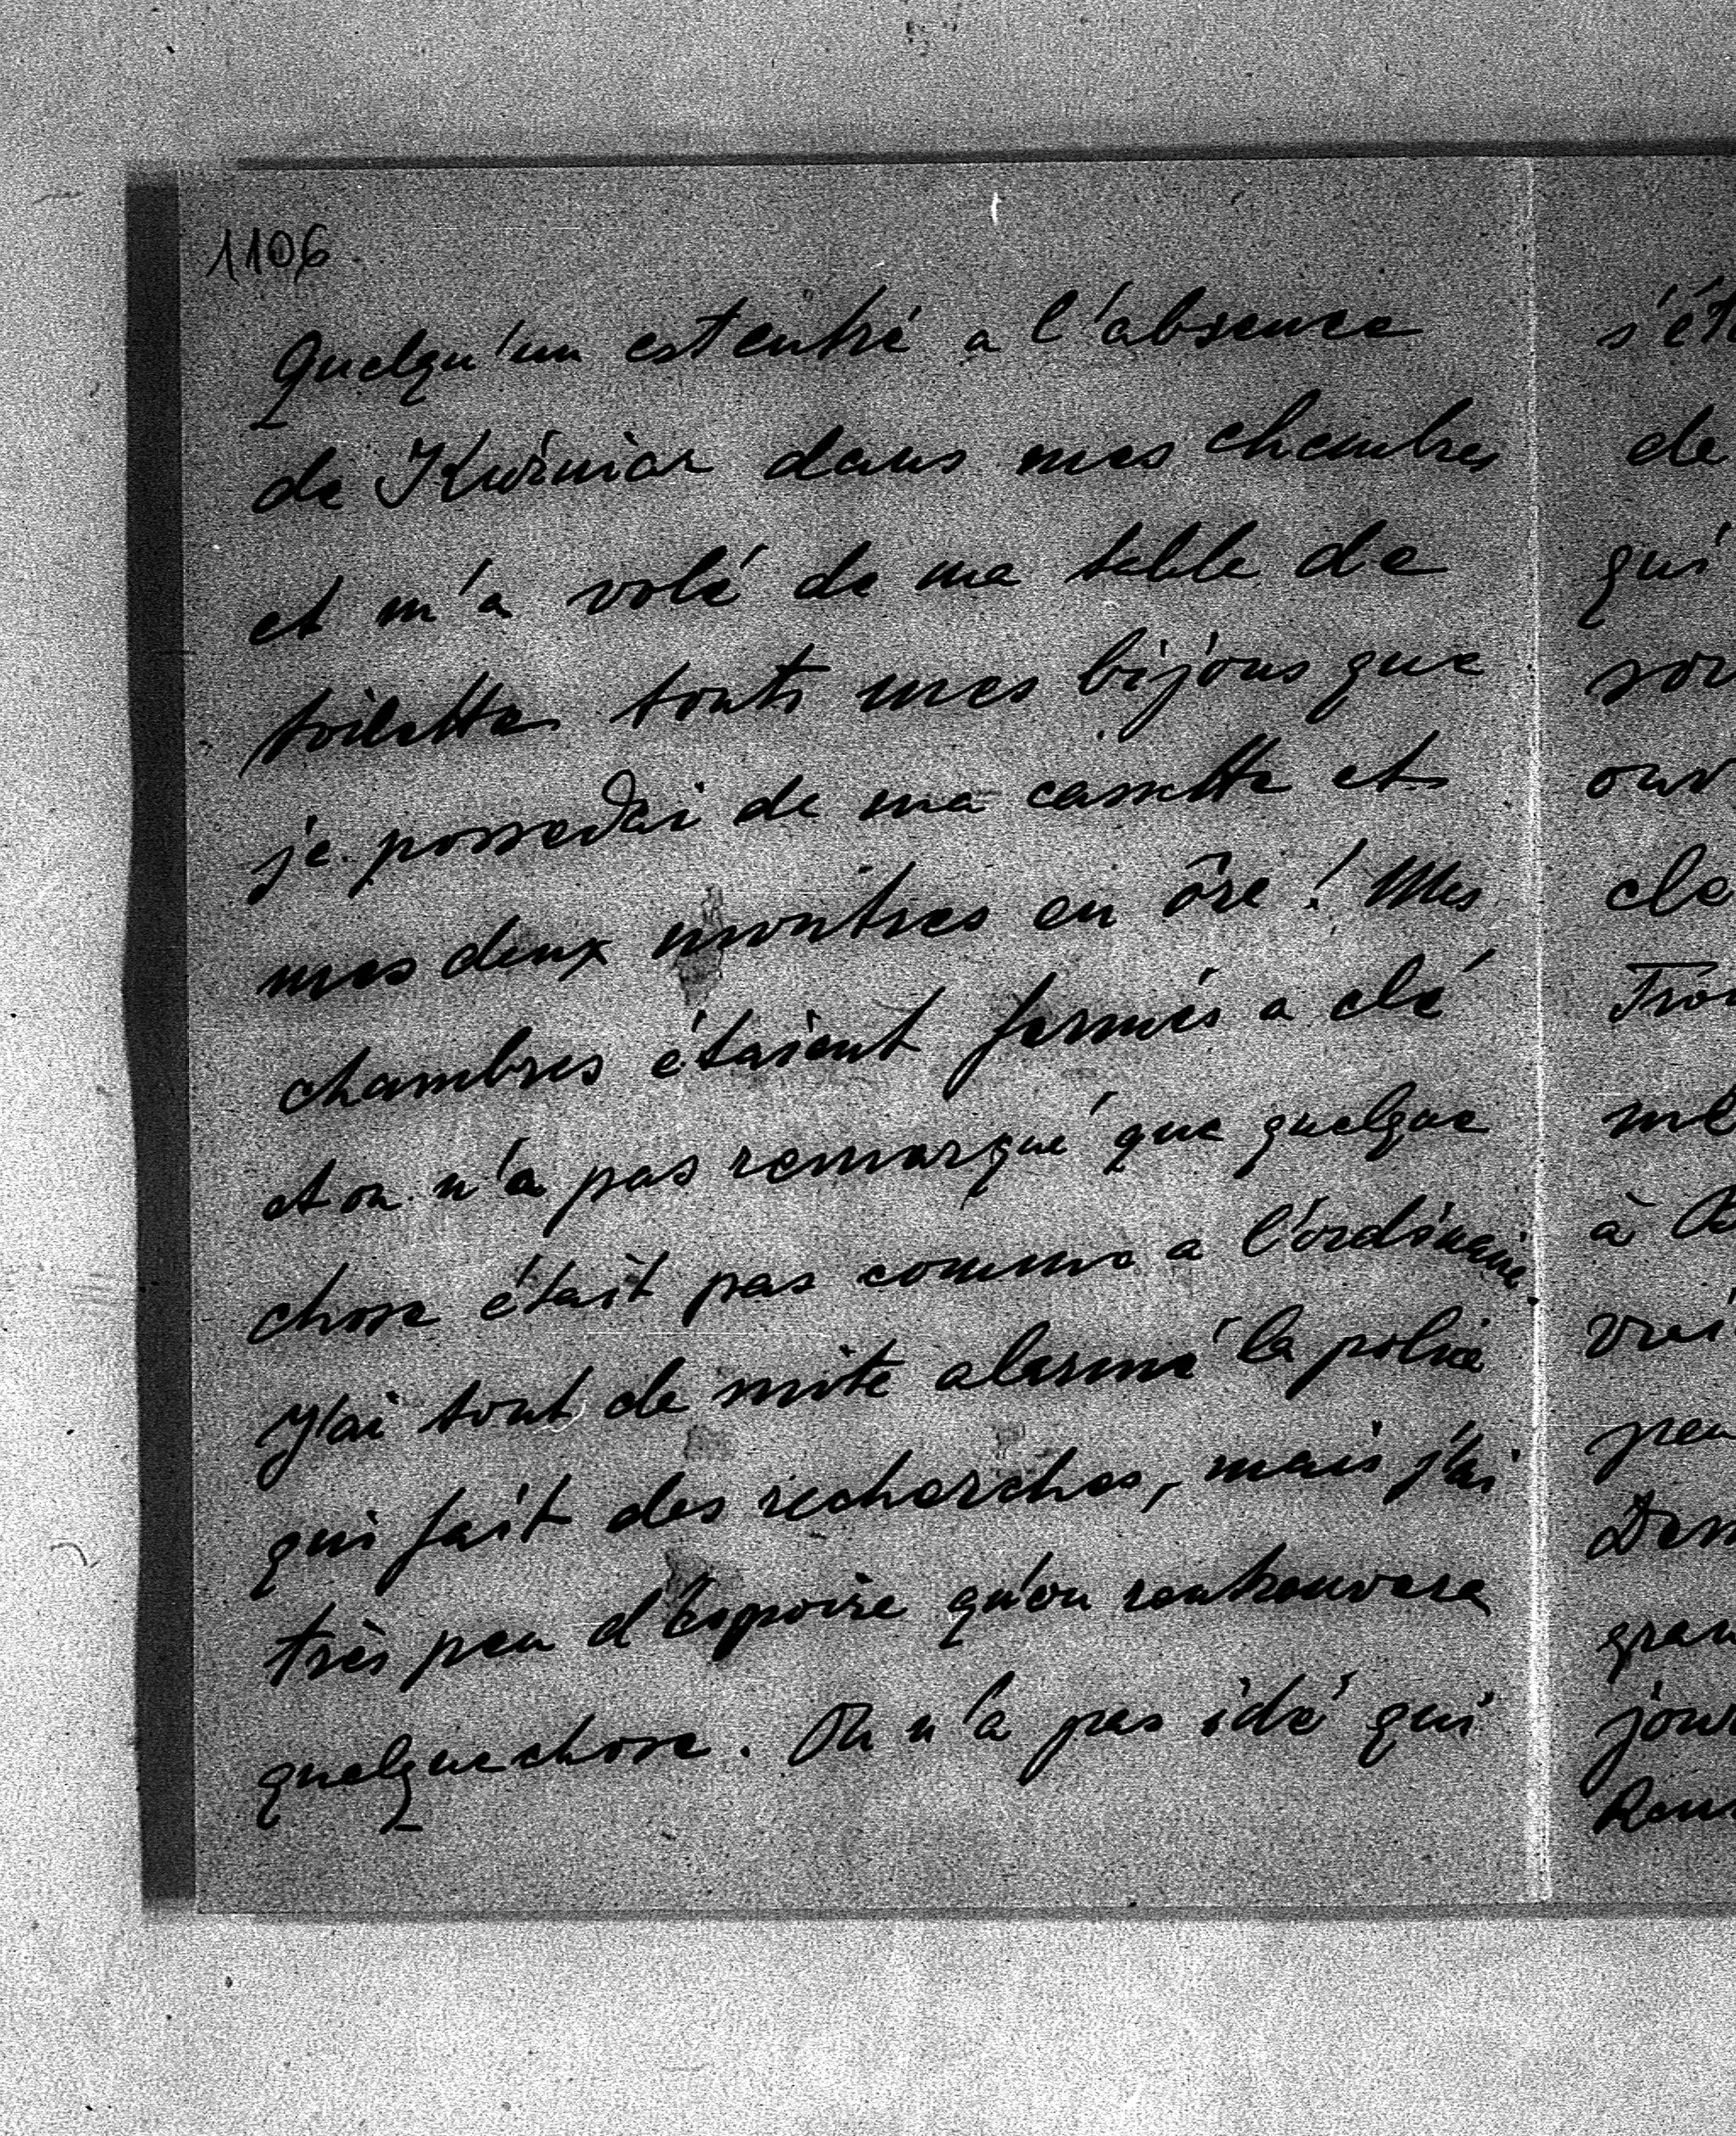 1106
Quelqu'un est entré a l'absence
de Kuźniar dans mes chambres
et m'a volé de ma table de
toilettes touts mes bijous que
je possedai de ma cassette et
mes deux montres en ôre! Mes
chambres étaient fermés a clé
et on n'a pas remarqué que quelque
chose était pas comme a l'ordinaire.
J'ai tout de suite alarmé la police
qui fait des recherches, mais j'ai
très peu d'espoire qu'on rentrouvera
quelquechose. On n'a pas idé qui
s'ét
de
qui
sou
ouv
cle
Tro
mê
à
vrai
peu
Dem
gran
jour